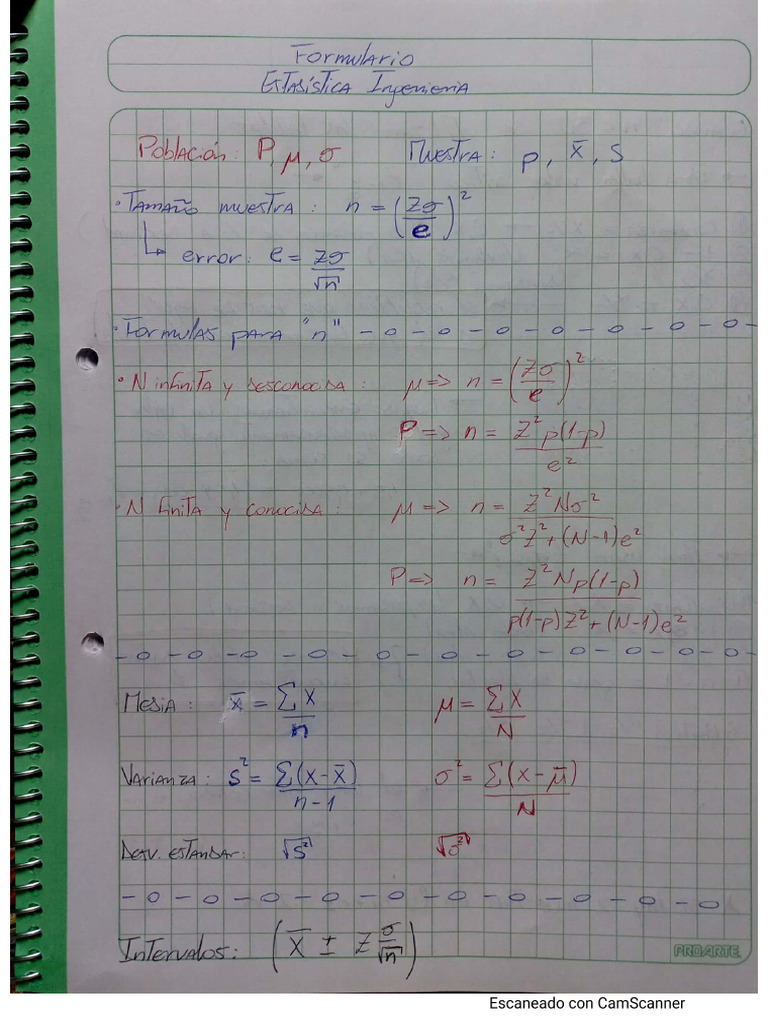 Formulario
Estadística Ingeniería
Población: P, μ, σ Muestra: p, x̄, s
• Tamaño muestra: n = (Zσ/e)²
error: e = Zσ/√n
• Formulas para "n" - o - o - o - o - o - o - o -
• N infinita y desconocida: μ => n = (Zσ/e)²
P => n = Z²p(1-p)/e²
• N finita y conocida: μ => n = Z²Nσ²/σ²Z²+(N-1)e²
P => n = Z²Np(1-p)/p(1-p)Z²+(N-1)e²
- o - o - o - o - o - o - o - o - o - o -
Media: x̄ = ∑x/n μ = ∑x/N
Varianza: s² = ∑(x-x̄)/n-1 σ² = ∑(x-μ̄)/N
Desv. estandar: √s² √σ²
- o - o - o - o - o - o - o - o - o - o
Intervalos: (x̄ ± Z σ/√n)
PROARTE
Escaneado con CamScanner